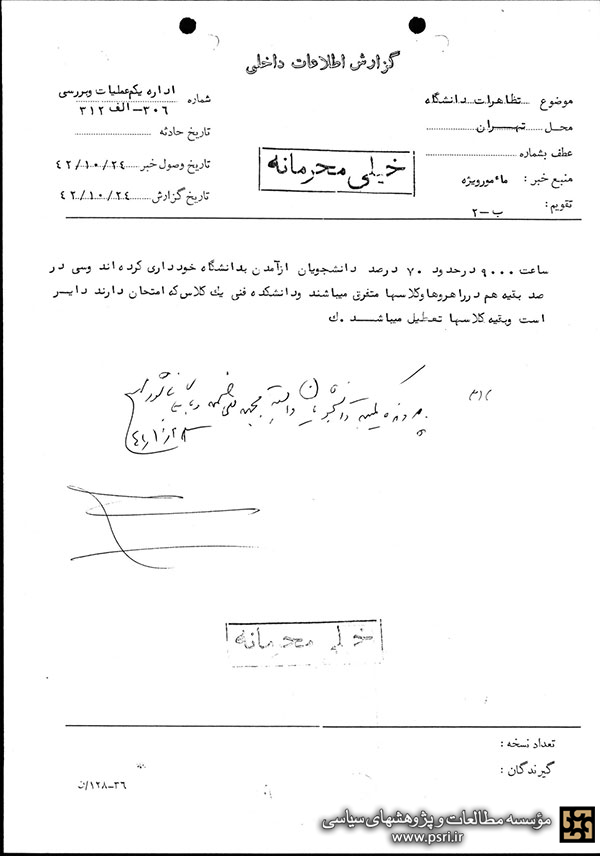 گزارش اطلاعات داخلی
موضوع تظاهرات دانشگاه
محل تهران
عطف بشماره
منبع خبر : مأمور ویژه
تقویم : ب-۲
اداره یکم عملیات و بررسی
شماره ۳۰۶-الف ۳۱۲
تاریخ حادثه
تاریخ وصول خبر ۴۲/۱۰/۲۴
تاریخ گزارش ۴۲/۱۰/۲۴
خیلی محرمانه
ساعت ۹۰۰۰ درحدود ۷۰ درصد دانشجویان ازآمدن بدانشگاه خودداری کرده اند وسی در
صد بقیه هم درراهروها وکلاسها متفرق میباشند ودانشکده فنی یک کلاس که امتحان دارند دایر
است وبقیه کلاسها تعطیل میباشد .ك
خیلی محرمانه
تعداد نسخه :
گیرندگان :
۳۶-۱۲۸/ن
مؤسسه مطالعات و پژوهشهای سیاسی
www.psri.ir